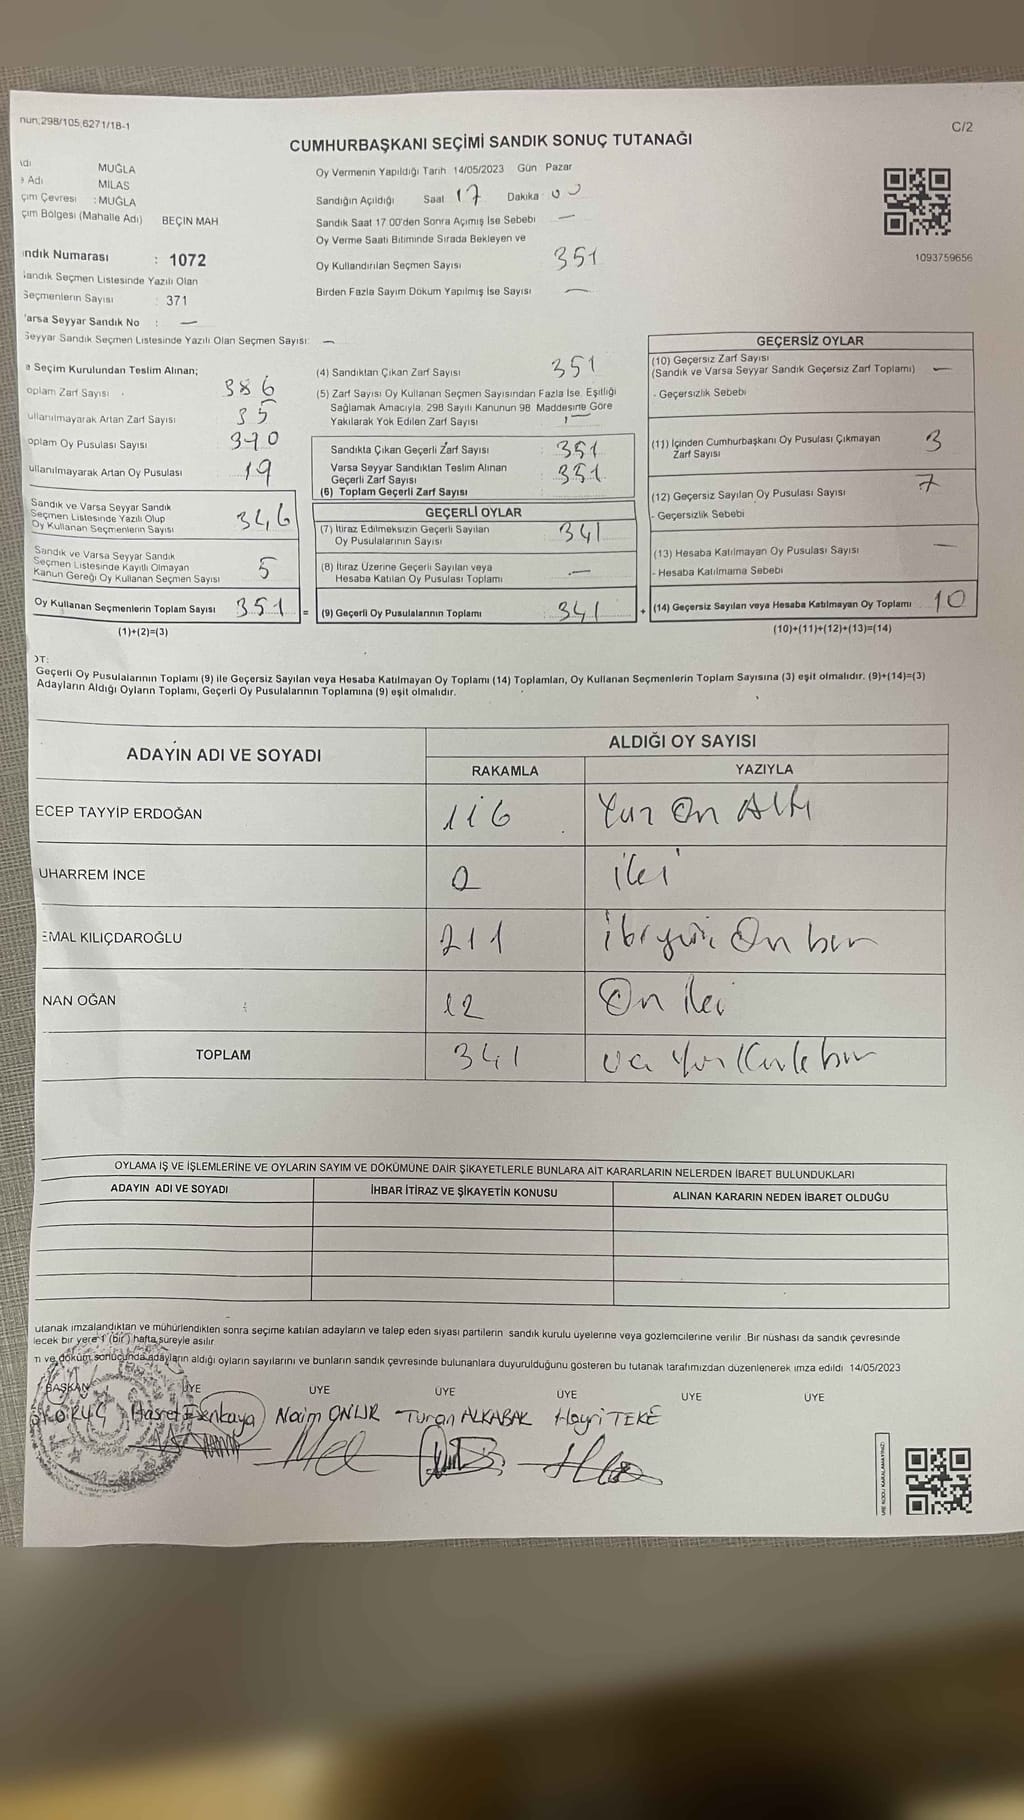 nun;298/105;6271/18-1
C/2
CUMHURBAŞKANI SEÇİMİ SANDIK SONUÇ TUTANAĞI
MUĞLA
Adı MİLAS
çim Çevresi : MUĞLA
çim Bölgesi (Mahalle Adı) BEÇİN MAH
ndık Numarası : 1072
Sandık Seçmen Listesinde Yazılı Olan
Seçmenlerin Sayısı : 371
Varsa Seyyar Sandık No : —
Seyyar Sandık Seçmen Listesinde Yazılı Olan Seçmen Sayısı: —
Oy Vermenin Yapıldığı Tarih 14/05/2023 Gün Pazar
Sandığın Açıldığı Saat 17 Dakika 00
Sandık Saat 17:00'den Sonra Açımış İse Sebebi —
Oy Verme Saati Bitiminde Sırada Bekleyen ve
Oy Kullandırılan Seçmen Sayısı 351
Birden Fazla Sayım Döküm Yapılmış İse Sayısı —
1093759656
e Seçim Kurulundan Teslim Alınan;
oplam Zarf Sayısı 386
ullanılmayarak Artan Zarf Sayısı 35
oplam Oy Pusulası Sayısı 370
ullanılmayarak Artan Oy Pusulası 19
Sandık ve Varsa Seyyar Sandık
Seçmen Listesinde Yazılı Olup
Oy Kullanan Seçmenlerin Sayısı 346
Sandık ve Varsa Seyyar Sandık
Seçmen Listesinde Kayıtlı Olmayan
Kanun Gereği Oy Kullanan Seçmen Sayısı 5
Oy Kullanan Seçmenlerin Toplam Sayısı 351
(1)+(2)=(3)
(4) Sandıktan Çıkan Zarf Sayısı 351
(5) Zarf Sayısı Oy Kullanan Seçmen Sayısından Fazla İse, Eşitliği
Sağlamak Amacıyla, 298 Sayılı Kanunun 98. Maddesine Göre
Yakılarak Yok Edilen Zarf Sayısı —
Sandıkta Çıkan Geçerli Zarf Sayısı 351
Varsa Seyyar Sandıktan Teslim Alınan
Geçerli Zarf Sayısı 351
(6) Toplam Geçerli Zarf Sayısı
GEÇERLİ OYLAR
(7) İtiraz Edilmeksizin Geçerli Sayılan
Oy Pusulalarının Sayısı 341
(8) İtiraz Üzerine Geçerli Sayılan veya
Hesaba Katılan Oy Pusulası Toplamı —
= (9) Geçerli Oy Pusulalarının Toplamı 341
GEÇERSİZ OYLAR
(10) Geçersiz Zarf Sayısı
(Sandık ve Varsa Seyyar Sandık Geçersiz Zarf Toplamı) —
- Geçersizlik Sebebi
(11) İçinden Cumhurbaşkanı Oy Pusulası Çıkmayan
Zarf Sayısı 3
(12) Geçersiz Sayılan Oy Pusulası Sayısı 7
- Geçersizlik Sebebi
(13) Hesaba Katılmayan Oy Pusulası Sayısı —
- Hesaba Katılmama Sebebi
+ (14) Geçersiz Sayılan veya Hesaba Katılmayan Oy Toplamı 10
(10)+(11)+(12)+(13)=(14)
OT:
Geçerli Oy Pusulalarının Toplamı (9) ile Geçersiz Sayılan veya Hesaba Katılmayan Oy Toplamı (14) Toplamları, Oy Kullanan Seçmenlerin Toplam Sayısına (3) eşit olmalıdır. (9)+(14)=(3)
Adayların Aldığı Oyların Toplamı, Geçerli Oy Pusulalarının Toplamına (9) eşit olmalıdır.
ADAYIN ADI VE SOYADI ALDIĞI OY SAYISI
RAKAMLA YAZIYLA
ECEP TAYYİP ERDOĞAN 116 Yüz On Altı
UHARREM İNCE 2 iki
EMAL KILIÇDAROĞLU 211 ikiyüz On bir
NAN OĞAN 12 On iki
TOPLAM 341 üç Yüz Kırk bir
OYLAMA İŞ VE İŞLEMLERİNE VE OYLARIN SAYIM VE DÖKÜMÜNE DAİR ŞİKAYETLERLE BUNLARA AİT KARARLARIN NELERDEN İBARET BULUNDUKLARI
ADAYIN ADI VE SOYADI İHBAR İTİRAZ VE ŞİKAYETİN KONUSU ALINAN KARARIN NEDEN İBARET OLDUĞU
utanak imzalandıktan ve mühürlendikten sonra seçime katılan adayların ve talep eden siyasi partilerin sandık kurulu üyelerine veya gözlemcilerine verilir. Bir nüshası da sandık çevresinde
lecek bir yere 1 (bir) hafta süreyle asılır.
n ve döküm sonucunda adayların aldığı oyların sayılarını ve bunların sandık çevresinde bulunanlara duyurulduğunu gösteren bu tutanak tarafımızdan düzenlenerek imza edildi 14/05/2023
BAŞKAN ÜYE ÜYE ÜYE ÜYE ÜYE ÜYE
Hasret Esenkaya Naim ONUR Turan ALKABAK Hayri TEKE